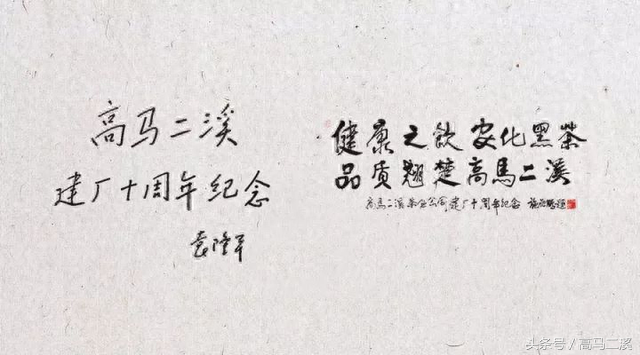 高马二溪
建厂十周年纪念
袁隆平
健康之飲安化黑茶
品质翘楚高馬二溪
高馬二溪茶业公司建厂十周年纪念
头条号/高马二溪